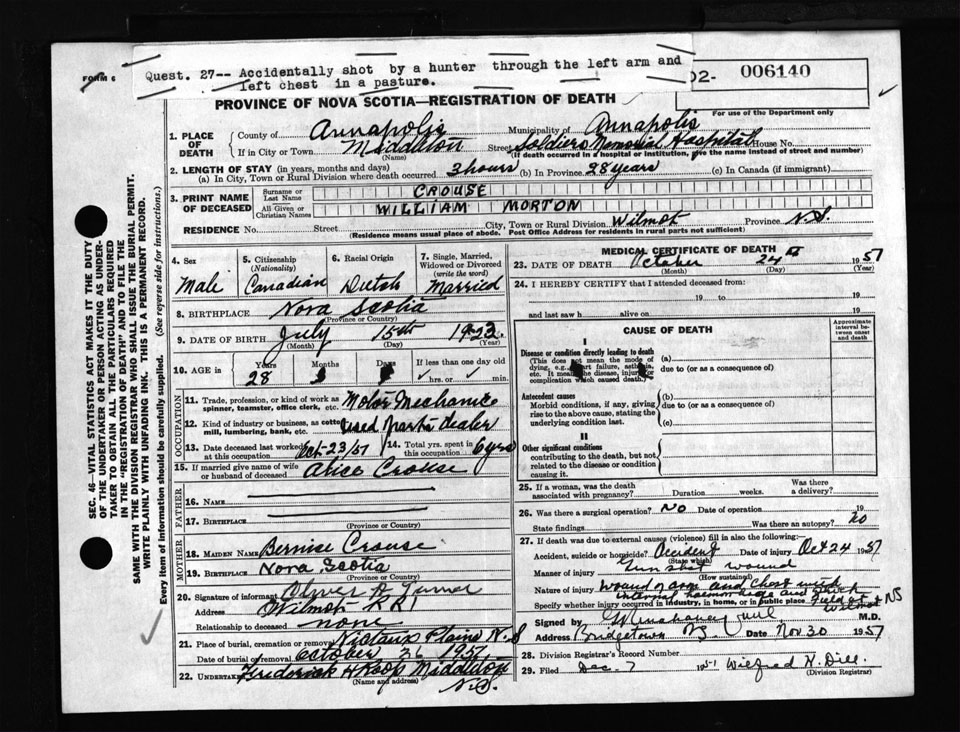 FORM 6
Quest. 27-- Accidentally shot by a hunter through the left arm and
left chest in a pasture.
02- 006140
PROVINCE OF NOVA SCOTIA—REGISTRATION OF DEATH
For use of the Department only
1. PLACE OF DEATH
County of Annapolis Municipality of Annapolis
If in City or Town Middleton Street Soldiers Memorial Hospital House No.
(Name) (If death occurred in a hospital or institution, give the name instead of street and number)
2. LENGTH OF STAY (in years, months and days)
(a) In City, Town or Rural Division where death occurred 3 hours (b) In Province 28 years (c) In Canada (if immigrant)
3. PRINT NAME OF DECEASED
Surname or Last Name CROUSE
All Given or Christian Names WILLIAM MORTON
RESIDENCE No. Street City, Town or Rural Division Wilmot Province N.S.
(Residence means usual place of abode. Post Office Address for residents in rural parts not sufficient)
4. Sex Male
5. Citizenship (Nationality) Canadian
6. Racial Origin Dutch
7. Single, Married, Widowed or Divorced (write the word) Married
8. BIRTHPLACE Nova Scotia
(Province or Country)
9. DATE OF BIRTH July 15th 1923
(Month) (Day) (Year)
10. AGE in Years 28 Months Days If less than one day old
hrs. or min.
OCCUPATION
11. Trade, profession, or kind of work as spinner, teamster, office clerk, etc. Motor Mechanic
12. Kind of industry or business, as cotton mill, lumbering, bank, etc. Used parts dealer
13. Date deceased last worked at this occupation Oct-23/51
14. Total yrs. spent in this occupation 6 yrs
15. If married give name of wife or husband of deceased Alice Crouse
FATHER
16. NAME
17. BIRTHPLACE
(Province or Country)
MOTHER
18. MAIDEN NAME Bernise Crouse
19. BIRTHPLACE Nova Scotia
(Province or Country)
20. Signature of informant Oliver
Address Wilmot RR1
Relationship to deceased none
21. Place of burial, cremation or removal Nictaux Plains N.S
Date of burial or removal October 26 1951
22. UNDERTAKER Frederick H Middleton
(Name and address) N.S.
MEDICAL CERTIFICATE OF DEATH
23. DATE OF DEATH October 24 1951
(Month) (Day) (Year)
24. I HEREBY CERTIFY that I attended deceased from:
19 to 19
and last saw h alive on 19
CAUSE OF DEATH
Approximate interval between onset and death
I
Disease or condition directly leading to death (a)
(This does not mean the mode of dying, e.g., heart failure, asthenia, etc. It means the disease, injury or complication which caused death.)
due to (or as a consequence of)
Antecedent causes (b)
Morbid conditions, if any, giving rise to the above cause, stating the underlying condition last.
due to (or as a consequence of)
(c)
II
Other significant conditions
contributing to the death, but not related to the disease or condition causing it.
25. If a woman, was the death associated with pregnancy? Duration weeks. Was there a delivery?
26. Was there a surgical operation? No Date of operation 19
State findings Was there an autopsy? no
27. If death was due to external causes (violence) fill in also the following:
Accident, suicide or homicide? Accident Date of injury Oct 24 1951
(State which)
Manner of injury Gun shot wound
(How sustained)
Nature of injury Wound of arm and chest with
internal haemorrhage and shock
Specify whether injury occurred in industry, in home, or in public place Field at
Wilmot NS
Signed by M.D.
Address Bridgetown NS. Date Nov 30 1951
28. Division Registrar's Record Number
29. Filed Dec. 7 1951 Wilfred H. Dill.
(Division Registrar)
SEC. 46—VITAL STATISTICS ACT MAKES IT THE DUTY
OF THE UNDERTAKER OR PERSON ACTING AS UNDER-
TAKER TO OBTAIN ALL THE PARTICULARS REQUIRED
IN THE "REGISTRATION OF DEATH" AND TO FILE THE
SAME WITH THE DIVISION REGISTRAR WHO SHALL ISSUE THE BURIAL PERMIT.
WRITE PLAINLY WITH UNFADING INK. THIS IS A PERMANENT RECORD.
Every item of information should be carefully supplied. (See reverse side for instructions.)